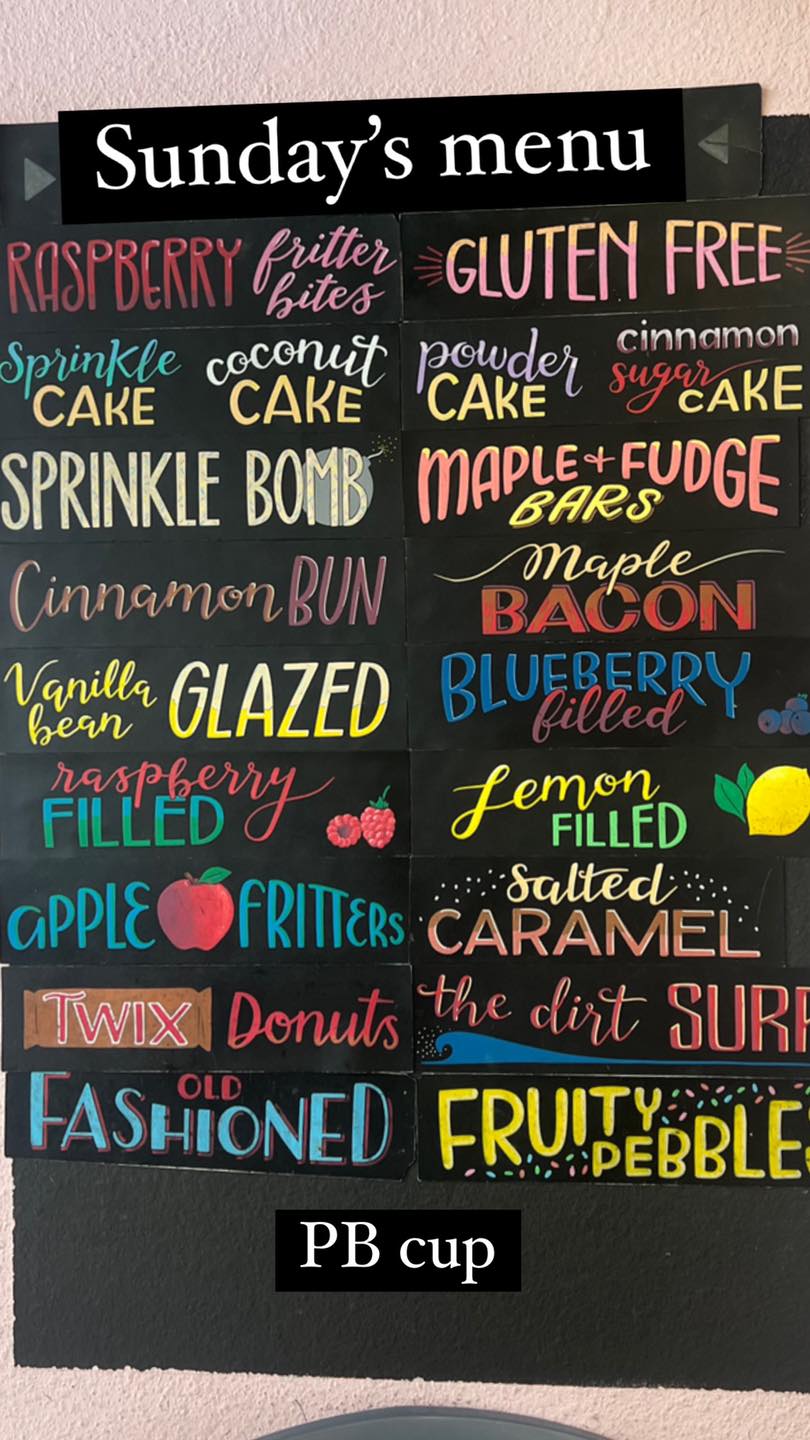 Sunday's menu
RASPBERRY fritter bites
GLUTEN FREE
Sprinkle CAKE
coconut CAKE
powder CAKE
cinnamon sugar CAKE
SPRINKLE BOMB
MAPLE + FUDGE BARS
Cinnamon BUN
Maple BACON
Vanilla bean GLAZED
BLUEBERRY filled
raspberry FILLED
Lemon FILLED
APPLE FRITTERS
Salted CARAMEL
TWIX Donuts
the dirt SURF
OLD FASHIONED
FRUITY PEBBLES
PB cup